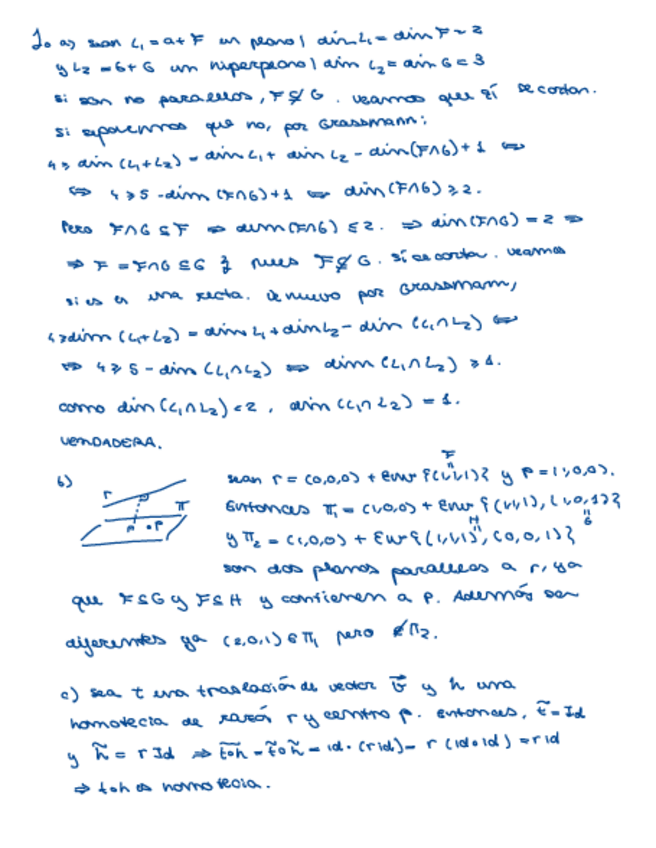 1. a) sean L₁ = a + F un plano | dim L₁ = dim F = 2
y L₂ = b + G un hiperplano | dim L₂ = dim G = 3
si son no paralelos, F ⊄ G. veamos que sí se cortan.
si suponemos que no, por Grassmann:
4 ≥ dim (L₁+L₂) = dim L₁ + dim L₂ - dim(F∩G) + 1 ⇔
⇔ 4 ≥ 5 - dim (F∩G) + 1 ⇔ dim(F∩G) ≥ 2.
Pero F∩G ⊆ F ⇒ dim(F∩G) ≤ 2. ⇒ dim(F∩G) = 2 ⇒
⇒ F = F∩G ⊆ G ↯ pues F ⊄ G. sí se corta. veamos
si es en una recta. de nuevo por Grassmann,
4 ≥ dim (L₁+L₂) = dim L₁ + dim L₂ - dim (L₁∩L₂) ⇔
⇔ 4 ≥ 5 - dim (L₁∩L₂) ⇔ dim (L₁∩L₂) ≥ 1.
como dim (L₁∩L₂) < 2, dim (L₁∩L₂) = 1.
VERDADERA.
b) r π p
sean r = (0,0,0) + Env {(1,1,1)} y p = (1,0,0).
F
Entonces π₁ = (1,0,0) + Env {(1,1,1), (1,0,1)}
G
y π₂ = (1,0,0) + Env {(1,1,1), (0,0,1)}
H
son dos planos paralelos a r, ya
que F ⊆ G y F ⊆ H y contienen a p. Además son
diferentes ya (2,0,1) ∈ π₁ pero ∉ π₂.
c) sea t una traslación de vector v⃗ y h una
homotecia de razón r y centro p. entonces, t̃ = Id
y h̃ = r Id ⇒ t∘h = t̃∘h̃ = id·(r id) = r (id∘id) = r id
⇒ t∘h es homotecia.